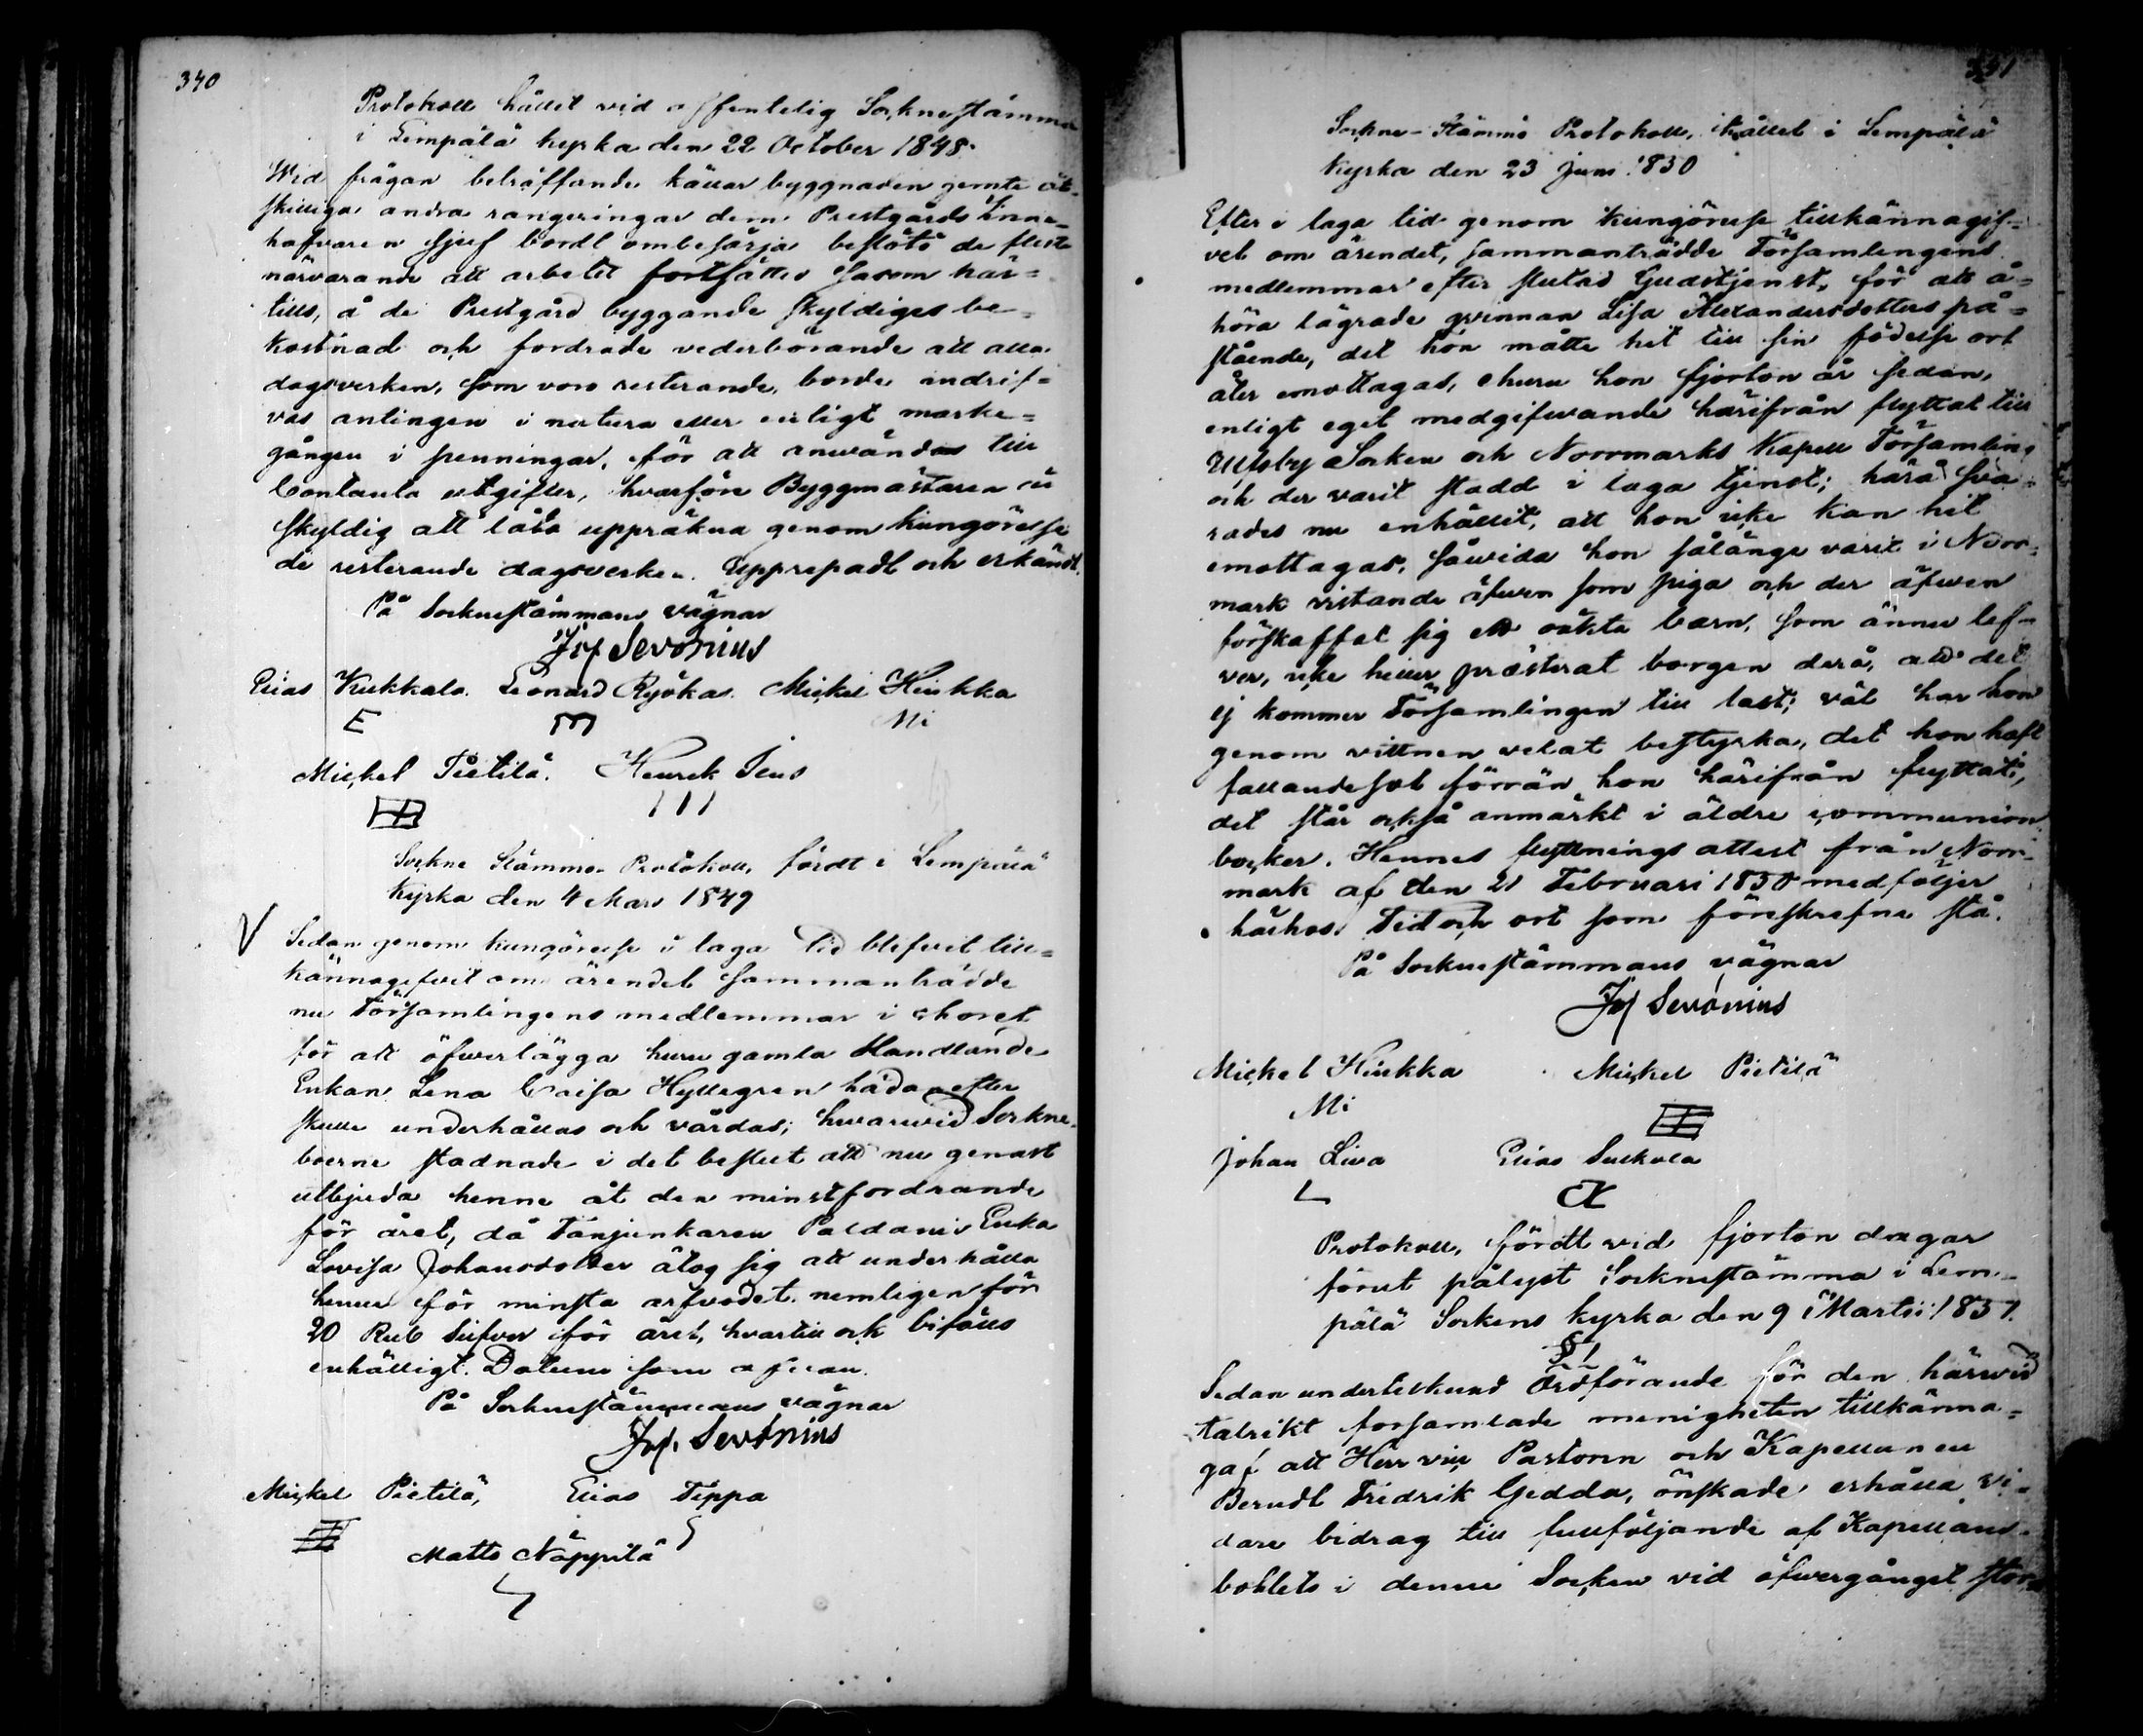 340
Protokoll hållet vid offentelig Socknestämma
i Lempälä kyrka den 22 October 1848.
Wid frågan beträffande källar byggnaden jemte åt-
skilliga andra rangeringar dem Prestgårds Inne-
hafvaren sjelf bordt ombesörja beslöts de fleste
närvarande att arbetet fortsättes såsom här=
tills, å de Prestgård byggande skyldiges be-
kostnad och fordrade vederbörande att alla
dagsverken, som voro resterande, borde indrif=
vas antingen i natura eller enligt marke=
gången i penningar, för att användas till
Contanta utgifter, hvarföre Byggmästaren är
skyldig att låta uppräkna genom kungörelse
de resterande dagsverken. Upprepadt och erkändt.
På Socknestämmans vägnar
Jos Sevonius
Elias Kukkala. Leonard Ryöka. Mickel Hiukka
E m Mi
Mickel Pietilä. Henrik Sens
III
Sockne Stämmo Protokoll, fördt i Lempälä
Kyrka den 4 Mars 1849
V Sedan genom kungörelse i laga tid blefvit till=
kännagefvit om ärendet sammanträdde
nu Församlingens medlemmar i choret
för att öfverlägga huru gamla Handlande
Enkan Lena Caisa Hyllegren hädanefter
skulle underhållas och vårdas; hwarwid Sockne-
boerne stadnade i det beslut att nu genast
utbjuda henne åt den minstfordrande
för året, då Fanjunkaren Paldanis Enka
Lovisa Johansdotter åtog sig att underhålla
henne för minsta arfvodet nemligen för
20 Rub Silfver för året, hvartill ock bifölls
enhälligt. Datum som ofvan.
På Socknestämmans vägnar
Jos. Sevonius
Mickel Pietilä, Elias Teppa
Matts Näppilä
341
Sockne-Stämmo Protokoll, hållet i Lempälä
Kyrka den 23 Juni 1850
Efter i laga tid genom kungörelse tillkännagif=
vet om ärendet, sammanträdde Församlingens
medlemmar efter slutad Gudstjenst, för att å=
höra lägrade qvinnan Lisa Alexandersdotters på=
stående, det hon måtte hit till sin födelse ort
åter emottagas, ehuru hon fjorton år sedan,
enligt eget medgifvande härifrån flyttat till
Ulfsby Socken och Norrmarks Kapell Församling
och der varit stadd i laga tjenst; härå sva-
rades nu enhälligt, att hon icke kan hit
emottagas, såwida hon sålänge varit i Norr-
mark vistande äfven som piga och der äfwen
förskaffat sig ett oäkta barn, som ännu lef-
ver, icke heller præsterat borgen derå, att det
ej kommer Församlingen till last; väl har hon
genom vittnen velat bestyrka, det hon haft
fallandesot förrän hon härifrån flyttat,
det står också anmärkt i äldre communion
böcker. Hennes flyttningsattest från Norr-
mark af den 21 Februari 1850 medföljer
härhos. Tid och ort som föreskrefne stå.
På Socknestämmans vägnar
Jos Sevonius
Mickel Hiukka Mickel Pietilä
Mi
Johan Liwa Elias Suckola
Protokoll, fördt vid fjorton dagar
förut pålyst Socknestämma i Lem-
pälä Sockens kyrka den 9 Martii 1851.
§1
Sedan undertecknad Ordförande för den härwid
talrikt församlade menigheten tillkänna=
gaf att Herr vice Pastorn och Kapellanen
Berndt Fridrik Gedda, önskade erhålla vi-
dare bidrag till fullföljande af Kapellans-
bohlets i denne Socken vid öfvergånget stor